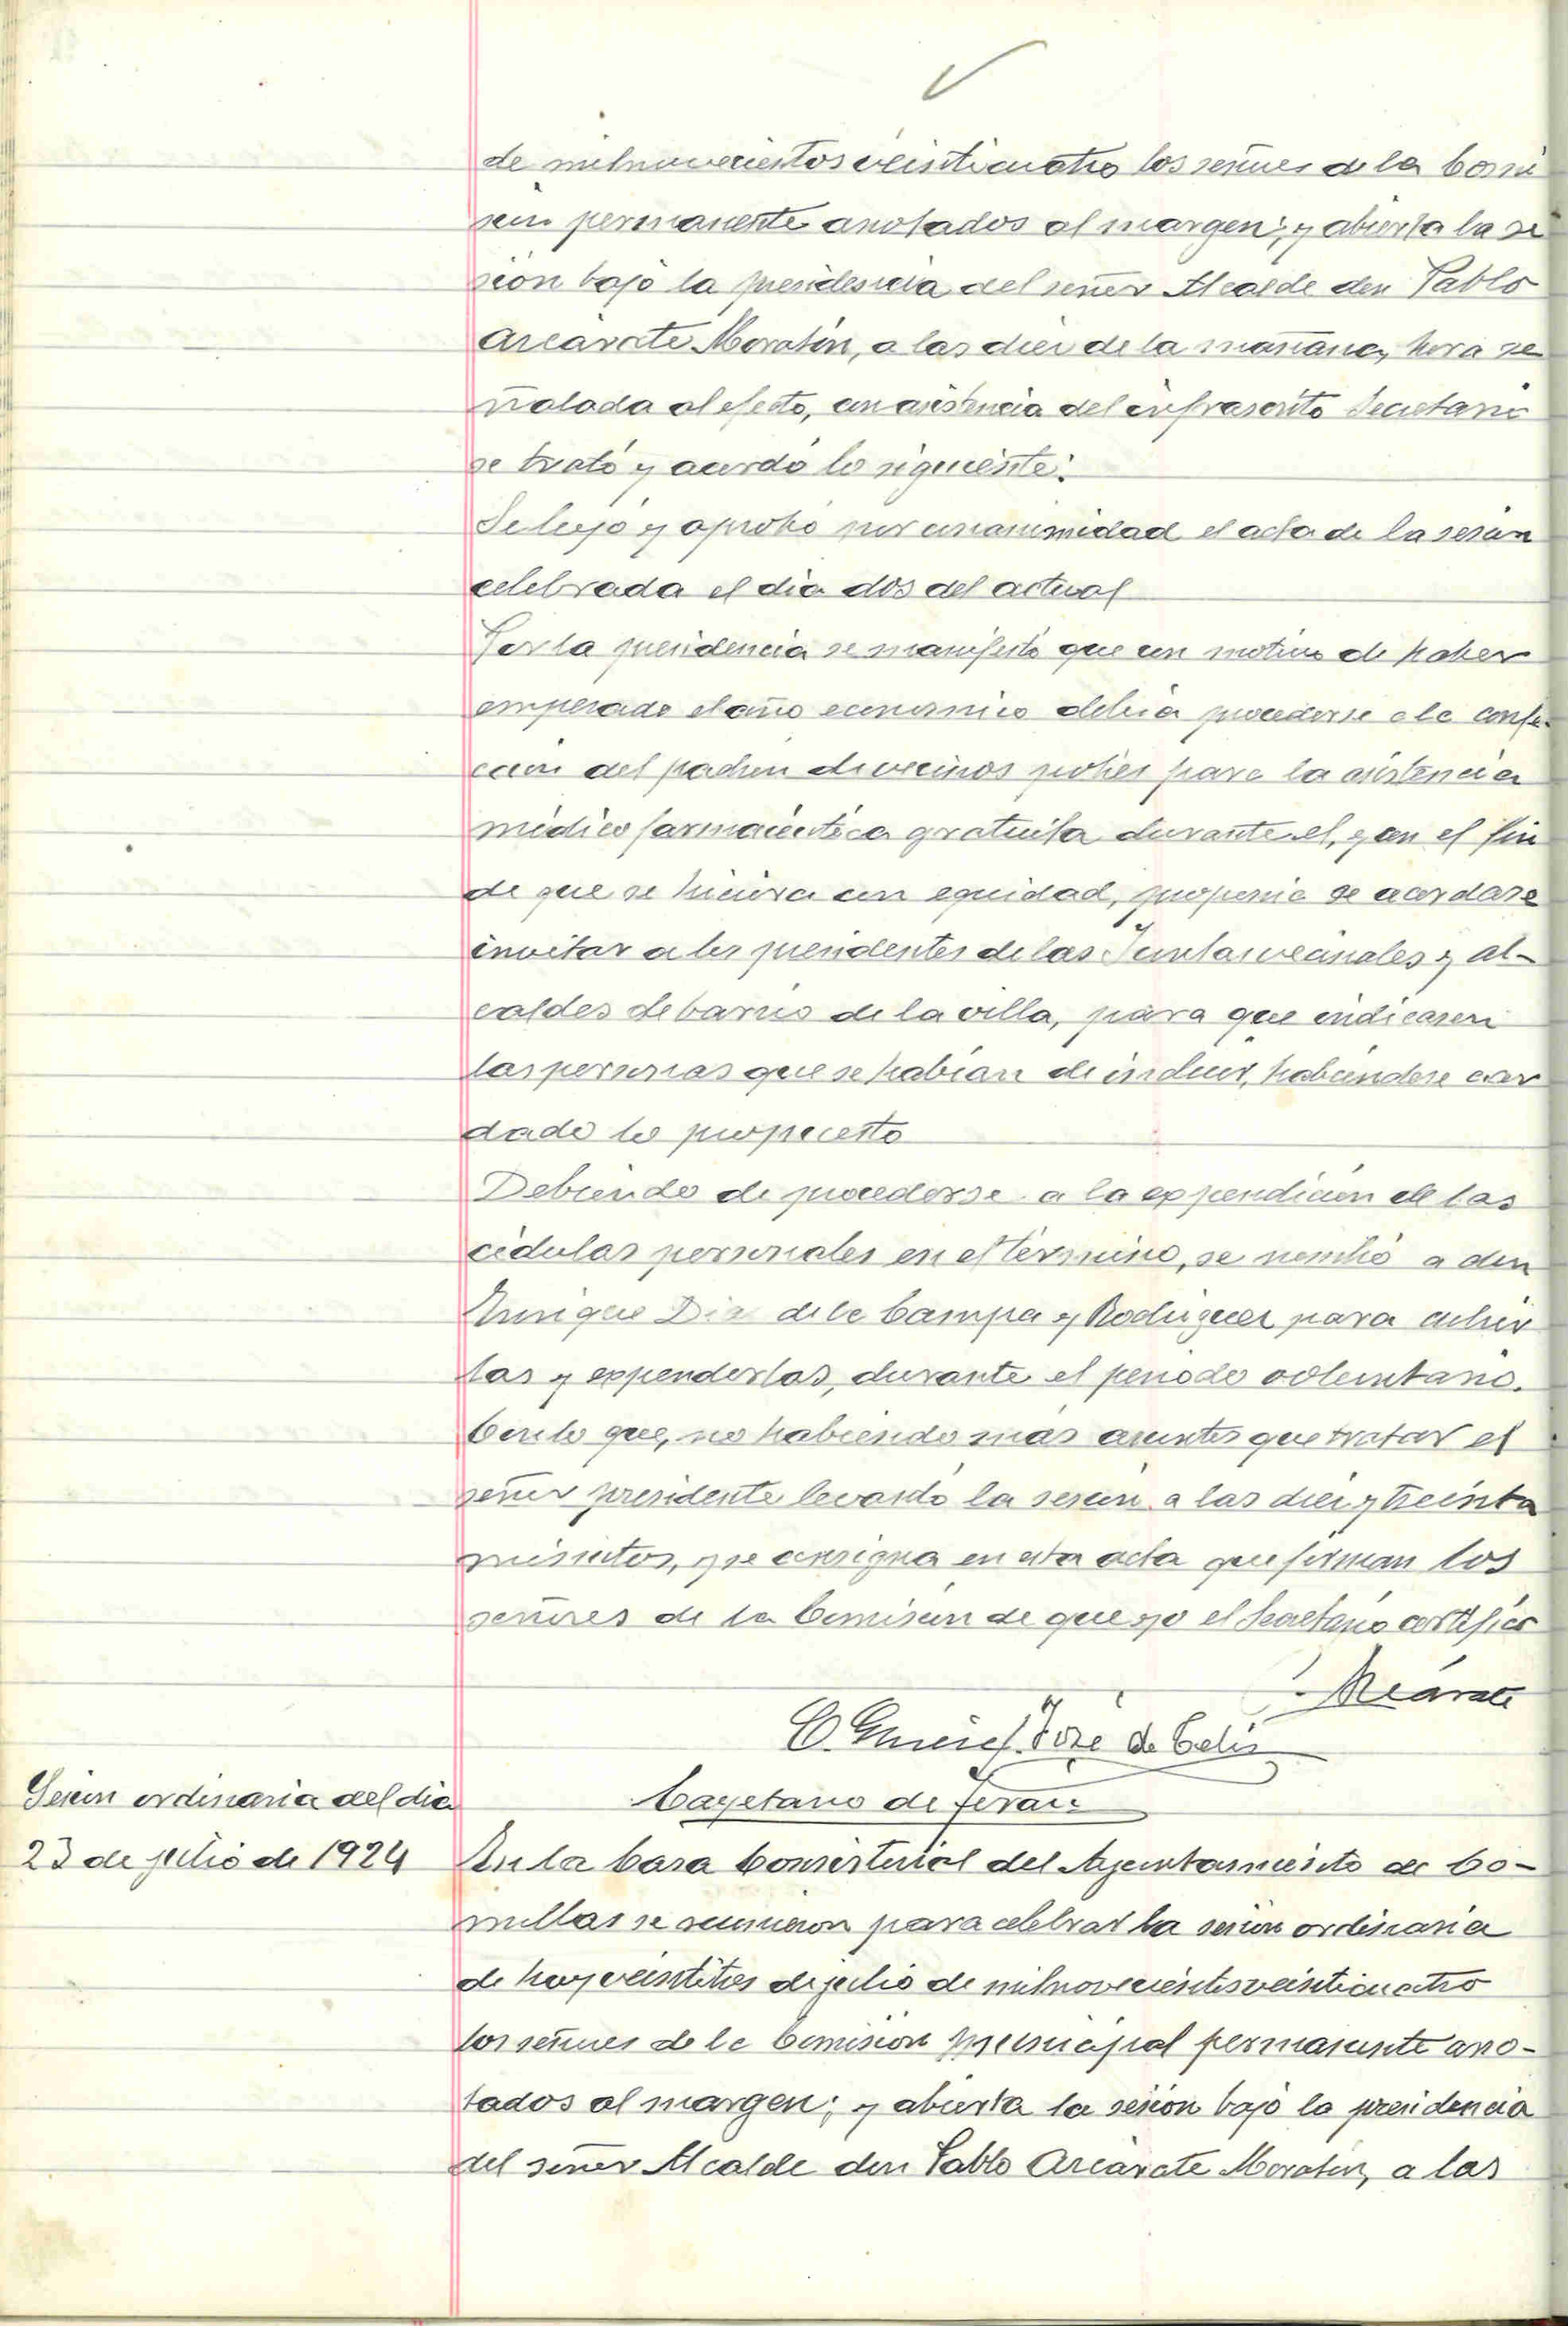 de milnovecientos veinticuatro los señores de la Comi
sión permanente anotados al margen; y abierta la se
sión bajo la presidencia del señor Alcalde don Pablo
Arcárate Moratín, a las diez de la mañana, hora se
ñalada al efecto, con asistencia del infrascrito Secretario
se trató y acordó lo siguiente:
Se leyó y aprobó por unanimidad el acta de la sesión
celebrada el dia dos del actual
Por la presidencia se manifestó que con motivo de haber
empezado el año economico debia procederse a la confe-
ccion del padron de vecinos pobres para la asistencia
médico farmacéutica gratuita durante el, y con el fin
de que se hiciera con equidad, proponia se acordase
invitar a los presidentes de las Juntas vecinales y al-
caldes de barrio de la villa, para que indicasen
las personas que se habían de incluir, habiendose acor
dado lo propuesto
Debiendo de procederse a la expendición de las
cédulas personales en el término, se nombró a don
Enrique Dia de la Campa y Rodriguez para cubrir
las y expenderlas, durante el periodo voluntario.
Con lo que, no habiendo mas asuntos que tratar el
señor presidente levantó la sesión a las diez y treinta
minutos, y se consigna en esta acta que firman los
señores de la Comisión de que yo el Secretario certifico
P. Arcárate
José de Celis
Cayetano de Teran
Sesión ordinaria del dia
23 de julio de 1924
En la Casa Consistorial del Ayuntamiento de Co-
millas se reunieron para celebrar la sesión ordinaria
de hoy veintitres de julio de milnovecientos veinticuatro
los señores de la Comisión municipal permanente ano-
tados al margen; y abierta la sesión bajo la presidencia
del señor Alcalde don Pablo Arcárate Moratín, a las